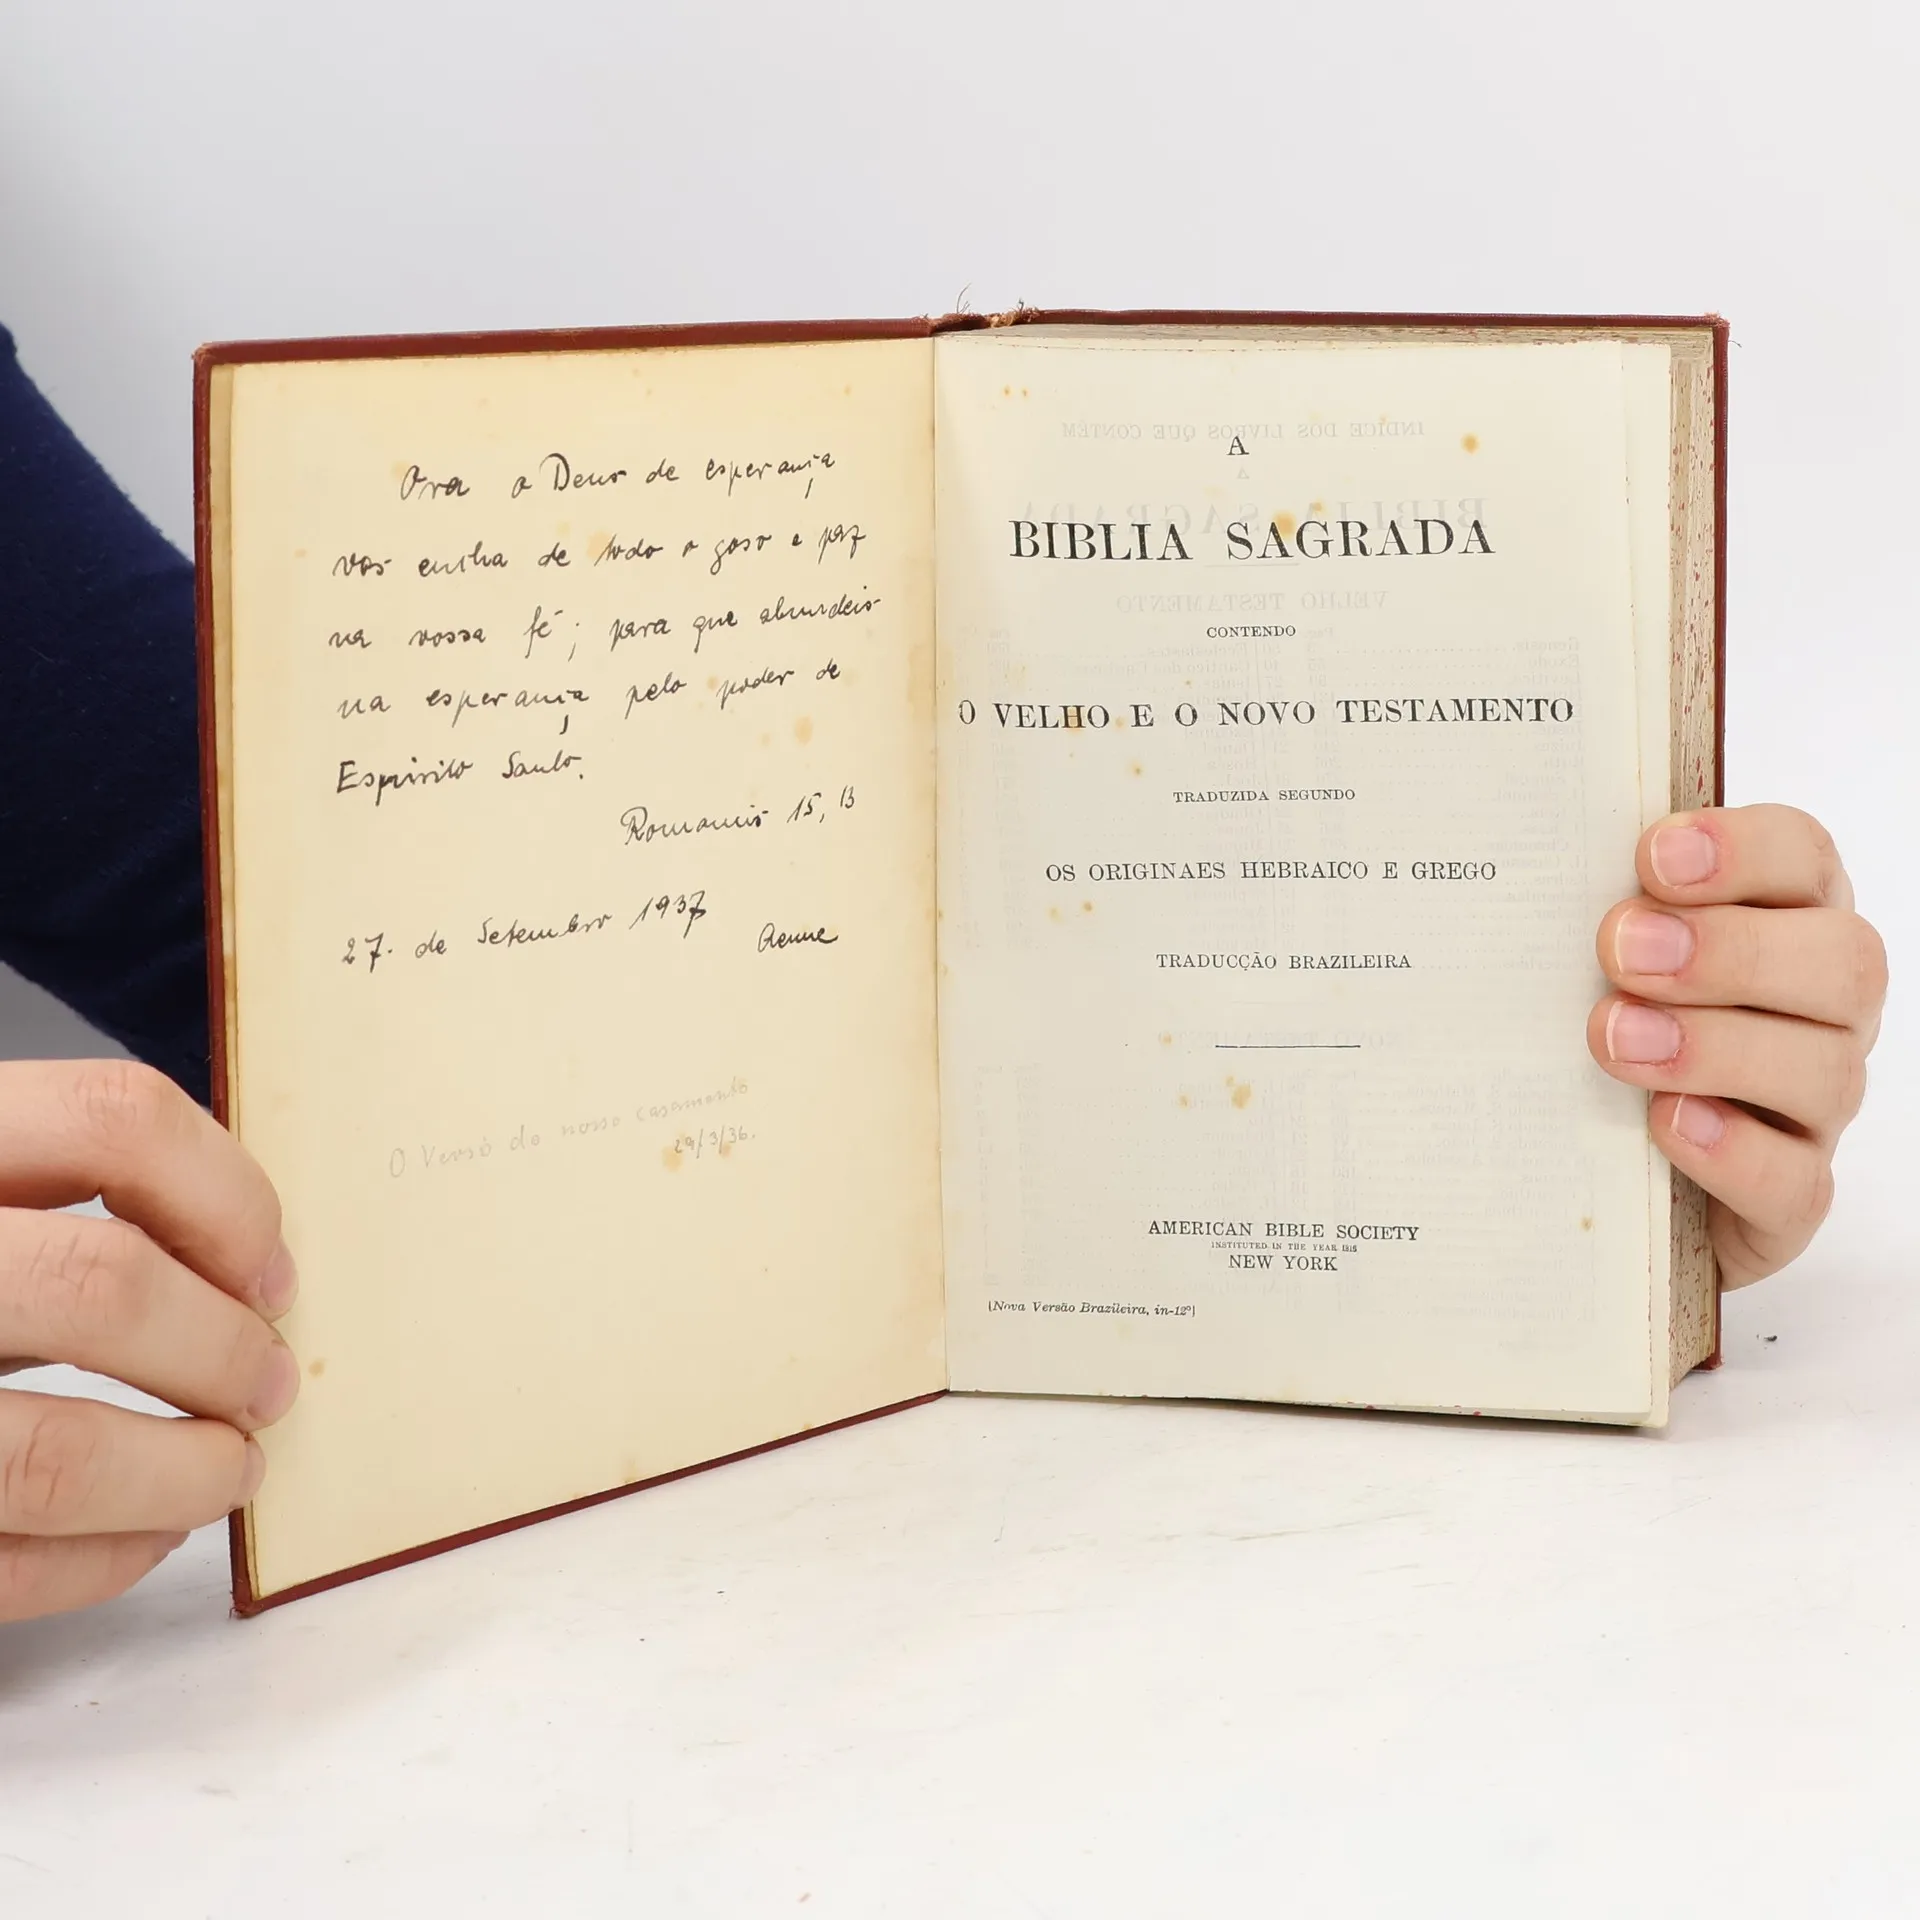 Ora o Deus de esperança
vos encha de todo o goso e paz
na vossa fé; para que abundeis
na esperança pelo poder de
Espirito Santo.
Romanis 15, 13
27. de Setembro 1937
Aenne
O Verso do nosso casamento
29/3/36.
A
BIBLIA SAGRADA
CONTENDO
O VELHO E O NOVO TESTAMENTO
TRADUZIDA SEGUNDO
OS ORIGINAES HEBRAICO E GREGO
TRADUCÇÃO BRAZILEIRA
AMERICAN BIBLE SOCIETY
INSTITUTED IN THE YEAR 1816
NEW YORK
[Nova Versão Brazileira, in-12º]